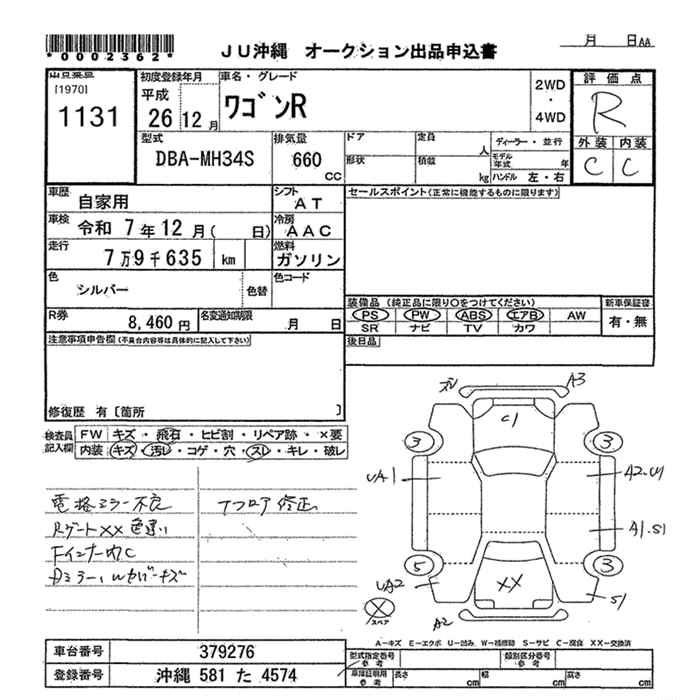 *0002362*
JU沖縄 オークション出品申込書
月 日AA
[1970]
1131
初度登録年月
平成
26 12 月
車名・グレード
ワゴンR
2WD
・
4WD
評価点
R
外装 内装
C C
型式
DBA-MH34S
排気量
660
CC
ドア
形状
定員
人
積載
kg
ディーラー・並行
モデル年式 年
ハンドル 左・右
車歴
自家用
シフト
AT
セールスポイント(正常に機能するものに限ります)
車検
令和 7 年 12 月( 日)
冷房
AAC
走行
7 万 9 千 635 km
燃料
ガソリン
色
シルバー
色替
色コード
装備品 (純正品に限り○をつけてください)
新車保証書
PS PW ABS エアB AW
有・無
SR ナビ TV カワ
R券
8,460 円
名変通知期限
月 日
後日品
注意事項申告欄(不具合内容等は具体的に記入して下さい)
修復歴 有〔箇所 〕
検査員記入欄
FW キズ・飛石・ヒビ割・リペア跡・×要
内装 キズ・汚レ・コゲ・穴・スレ・キレ・破レ
電格ミラー不良
Rゲート××色違い
Fインナー内C
Tフロア修正
ズレ
A3
C1
3
3
UA1
A2.U1
A1.S1
5
3
UA2
××
S1
A2
×
スペア
A-キズ E-エクボ U-凹み W-補修跡 S-サビ C-腐食 XX-交換済
車台番号
379276
登録番号
沖縄 581 た 4574
型式指定番号
参考
類別区分番号
参考
車庫証明用
参考
長さ
cm
幅
cm
高さ
cm